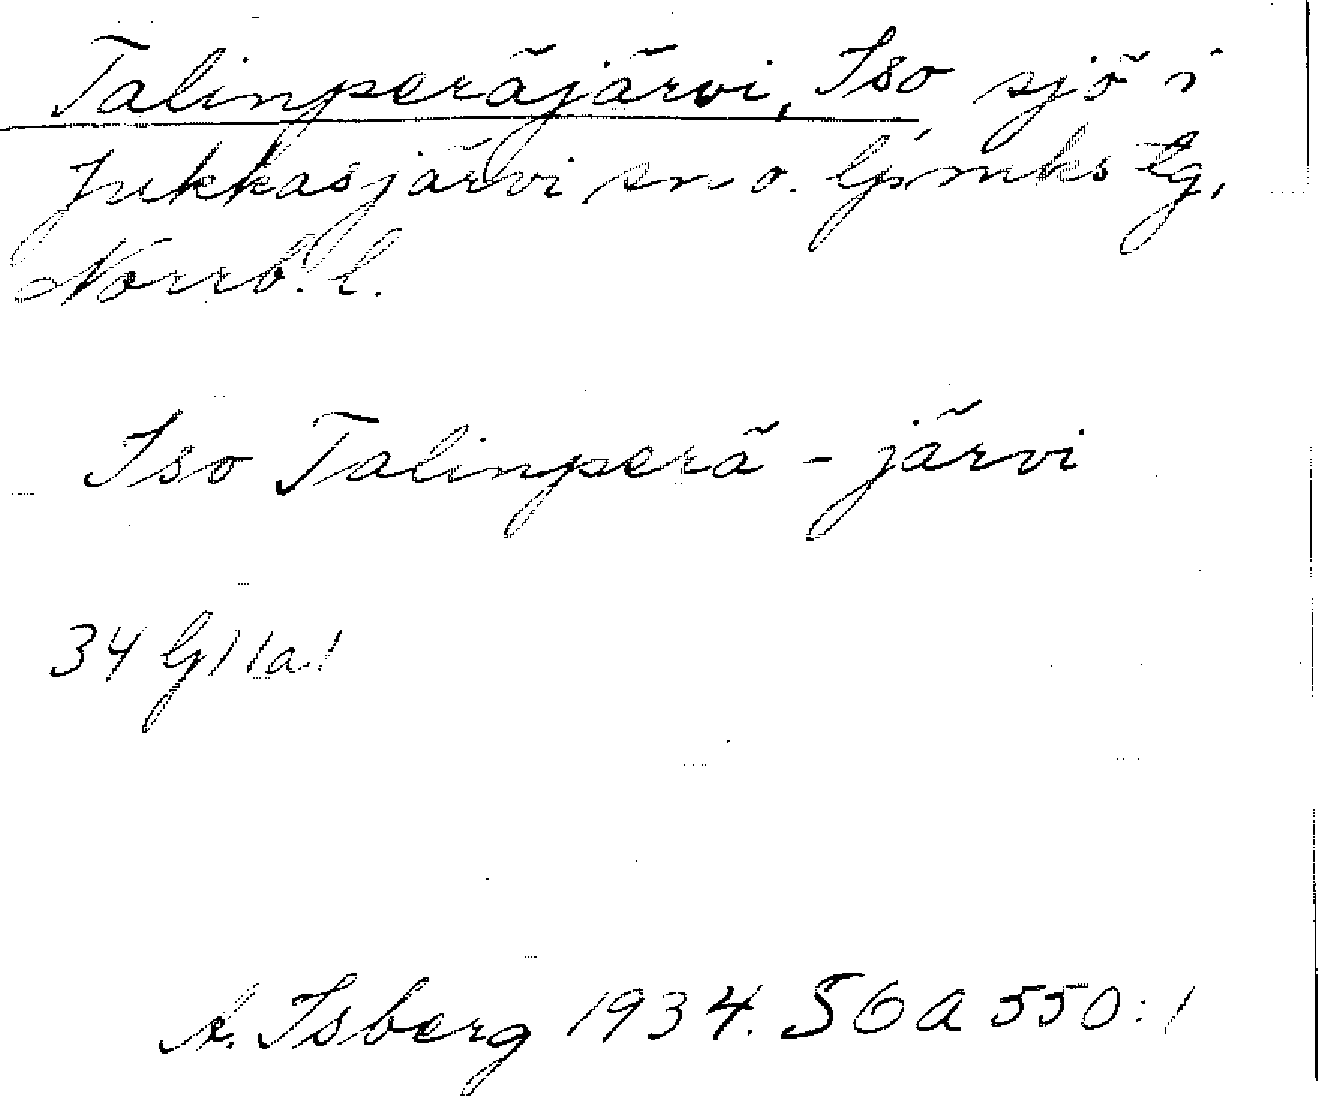 Talinperäjärvi, Iso sjö i
Jukkasjärvi sn o. Gs:mks tg,
Norrb. l.
Iso Talinperä - järvi
34 G 11a.1
A. Isberg 1934. SOA 550:1